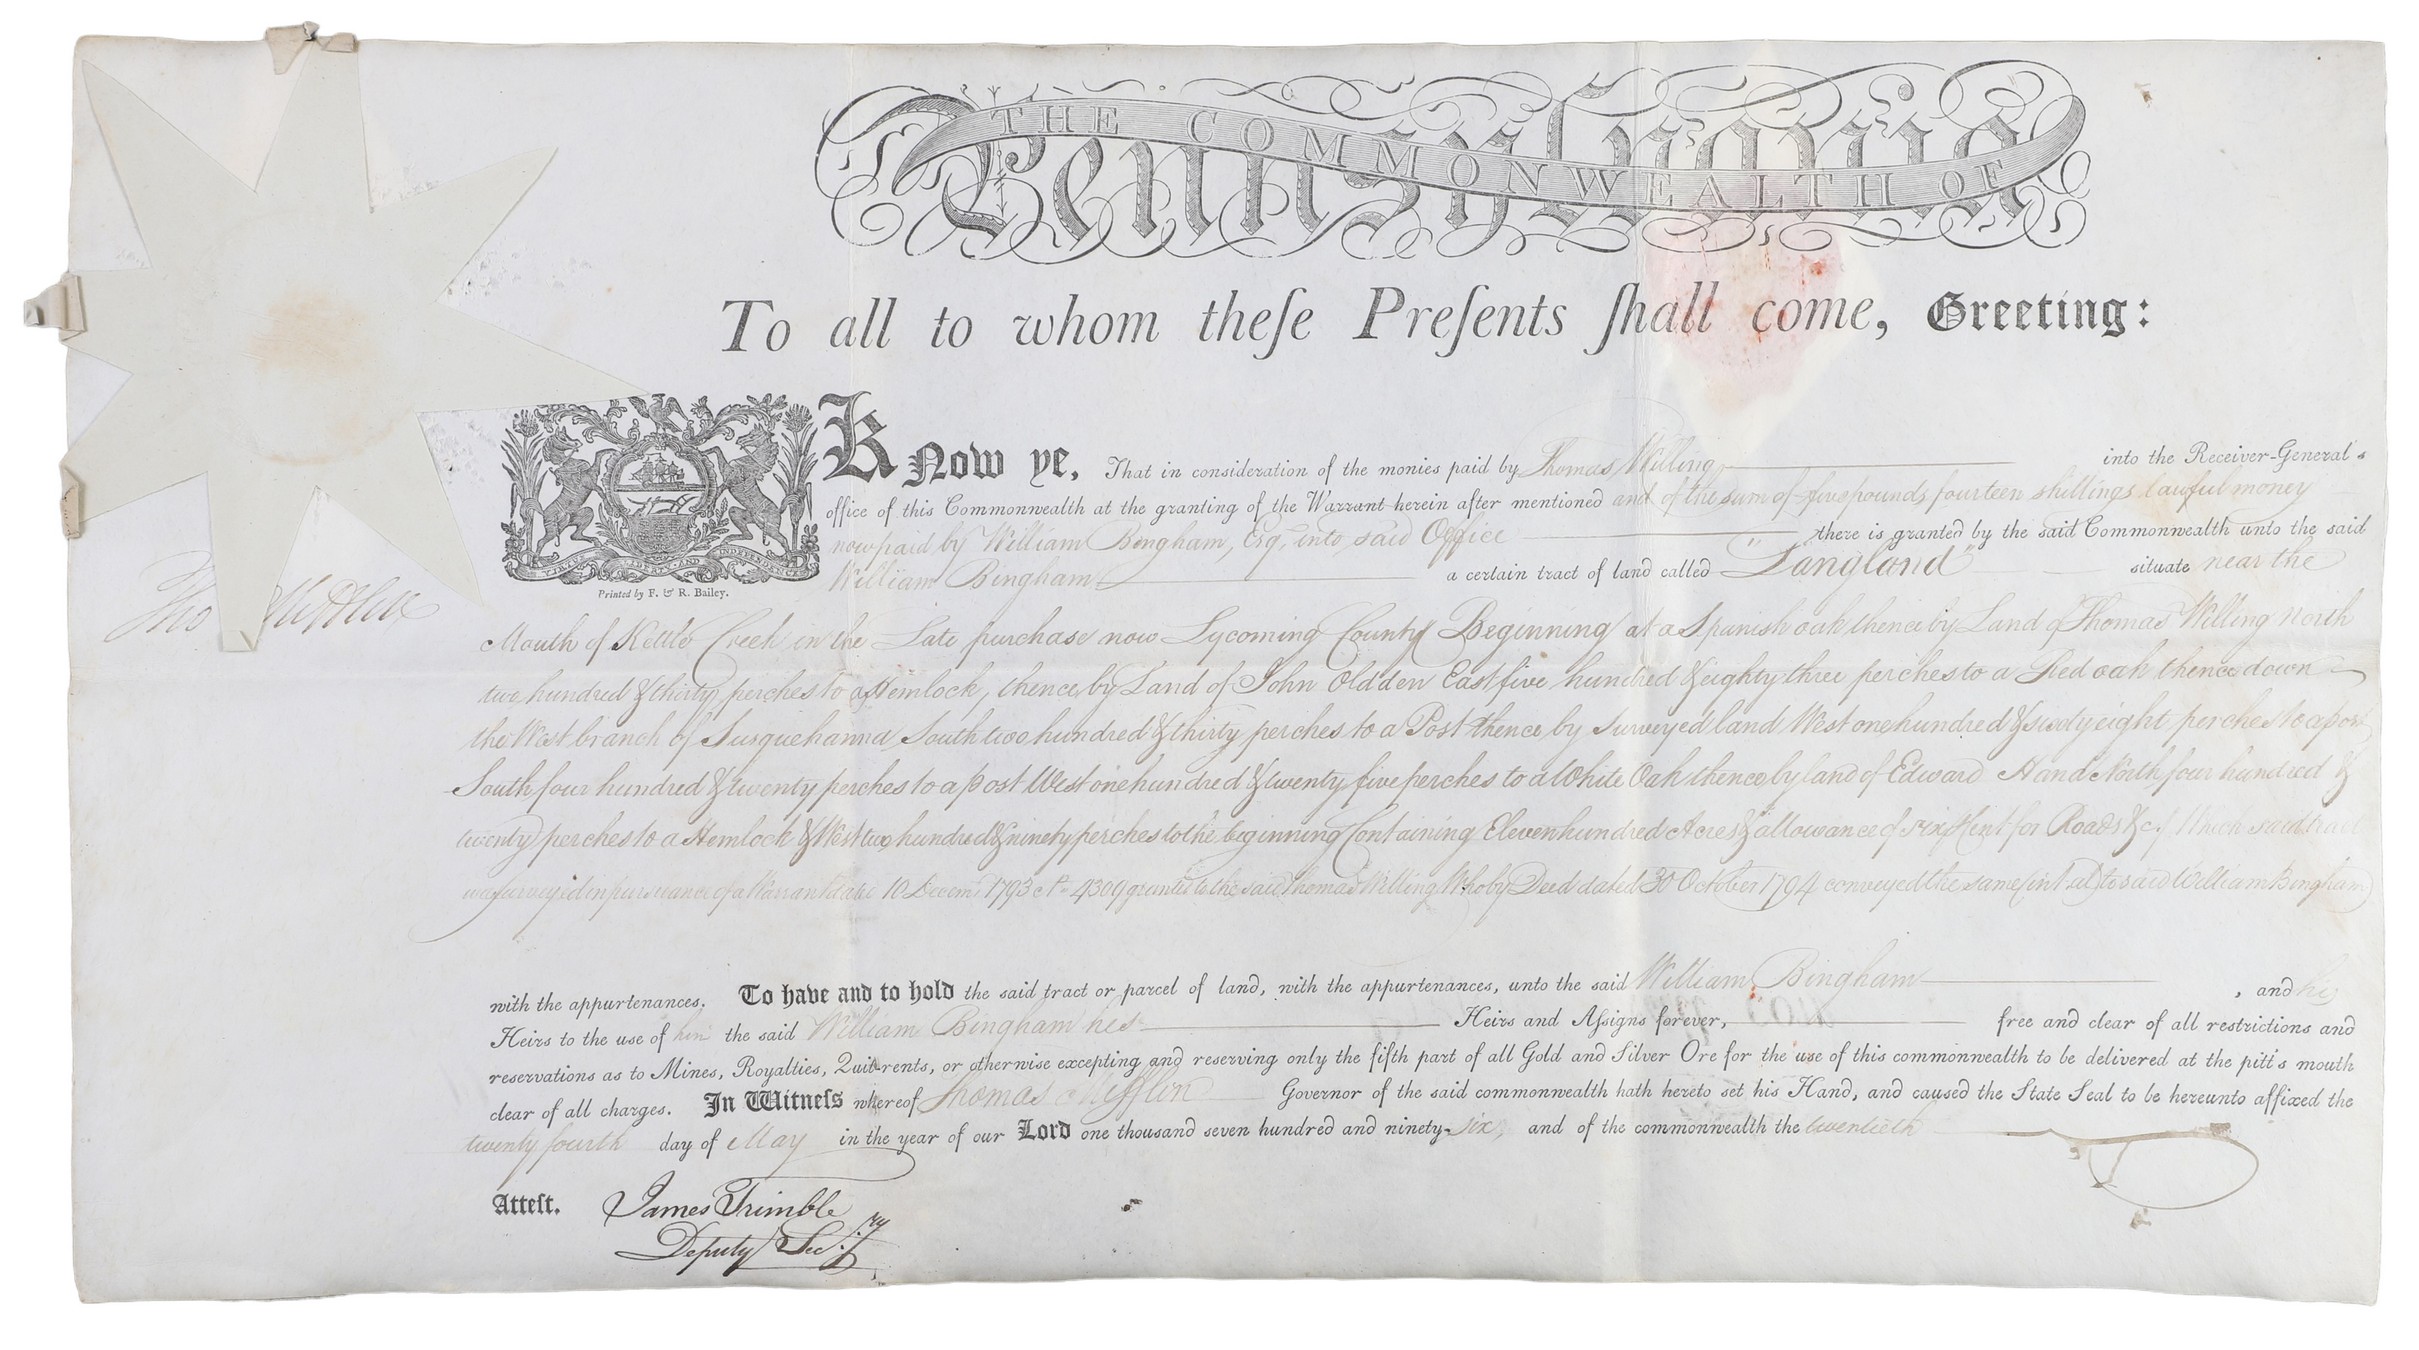 THE COMMONWEALTH OF
Pennsylvania
To all to whom theſe Preſents ſhall come, Greeting:
VIRTUE LIBERTY AND INDEPENDENCE
Printed by F. & R. Bailey.
Know ye, That in consideration of the monies paid by Thomas Willing into the Receiver-General's
office of this Commonwealth at the granting of the Warrant herein after mentioned and of the sum of five pounds fourteen shillings lawful money
now paid by William Bingham, Esq. into said Office there is granted by the said Commonwealth unto the said
William Bingham a certain tract of land called "Langland" situate near the
Mouth of Kettle Creek in the Late purchase now Lycoming County Beginning at a Spanish oak thence by Land of Thomas Willing North
two hundred & thirty perches to a Hemlock, thence by Land of John Oldden East five hundred & eighty three perches to a Red oak thence down
the West branch of Susquehanna South two hundred & thirty perches to a Post thence by surveyed land West one hundred & sixty eight perches to a post
South four hundred & twenty perches to a post West one hundred & twenty five perches to a White Oak thence by land of Edward Hand North four hundred &
twenty perches to a Hemlock & West two hundred & ninety perches to the beginning Containing Eleven hundred Acres & allowance of six P Cent for Roads &c. Which said tract
was surveyed in pursuance of a Warrant dated 10 Decemr. 1793 No. 4309 granted to the said Thomas Willing Who by Deed dated 30 October 1794 conveyed the same to said William Bingham
with the appurtenances. To have and to hold the said tract or parcel of land, with the appurtenances, unto the said William Bingham, and his
Heirs to the use of him the said William Bingham his Heirs and Aſsigns forever, free and clear of all restrictions and
reservations as to Mines, Royalties, Quit-rents, or otherwise excepting and reserving only the fifth part of all Gold and Silver Ore for the use of this commonwealth to be delivered at the pitt's mouth
clear of all charges. In Witneſs whereof Thomas Mifflin Governor of the said commonwealth hath hereto set his Hand, and caused the State Seal to be hereunto affixed the
twenty fourth day of May in the year of our Lord one thousand seven hundred and ninety-six, and of the commonwealth the twentieth
Tho Mifflin
Atteſt. James Trimble
Deputy Sec.ry